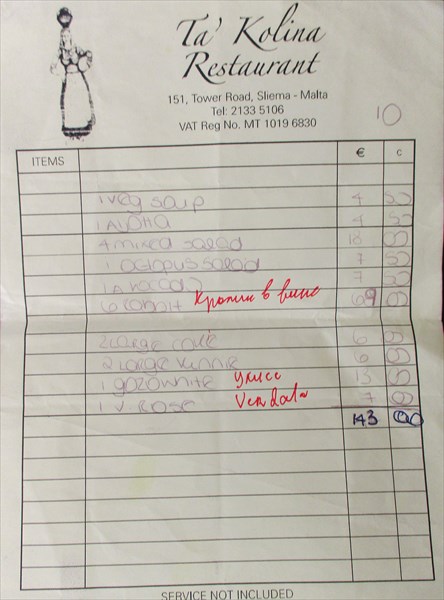 Ta' Kolina
Restaurant
151, Tower Road, Sliema - Malta
Tel: 2133 5106
VAT Reg No. MT 1019 6830
10
ITEMS € c
1 veg soup 4 50
1 Aljotta 4 50
4 mixed salad 18 00
1 octipus salad 7 50
1 Avacado 7 50
6 rabbit Кролик в вине 69 00
2 large coke 6 00
2 large kinnie 6 00
1 gozo white 13 00
1 V Rose Verdala 7 00
143 00
SERVICE NOT INCLUDED